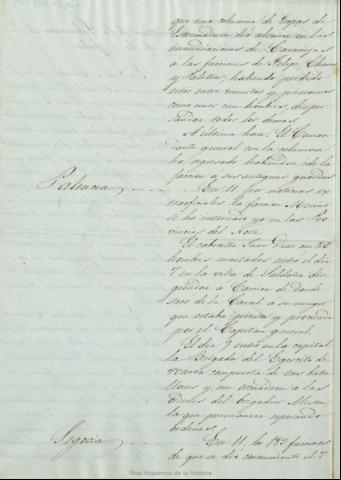 que una columna de tropas de
Estremadura dio alcance en las
inmediaciones de
a las facciones de Felipe, Chaves
y habiendo perdido
estos entre muertos y prisioneros
como unos cien hombres, disper-
sandose todos los demas.
A ultima hora: El Coman
dante general con la columna
ha regresado habiendose ido la
faccion a sus antiguas guaridas
Palencia En 11 por noticias ex
traoficiales la faccion Merino
se ha internado ya en las Pro
vincias del Norte.
El cabecilla Juan Diez con 50
hombres montados entró el dia
7 en la villa de Saldaña diri
giendose a Carrion de donde
saco de la Carcel a su muger
que estaba presa y
por el Capitan general.
El dia 9 entró en la capital
la Brigada del Egercito de
reserva compuesta de tres bata
llones y un escuadron a las
ordenes del Brigadier
la que permanece esperando
ordenes.
Segovia En 11. La
de que a dio conocimiento el 7
Real Academia de la Historia